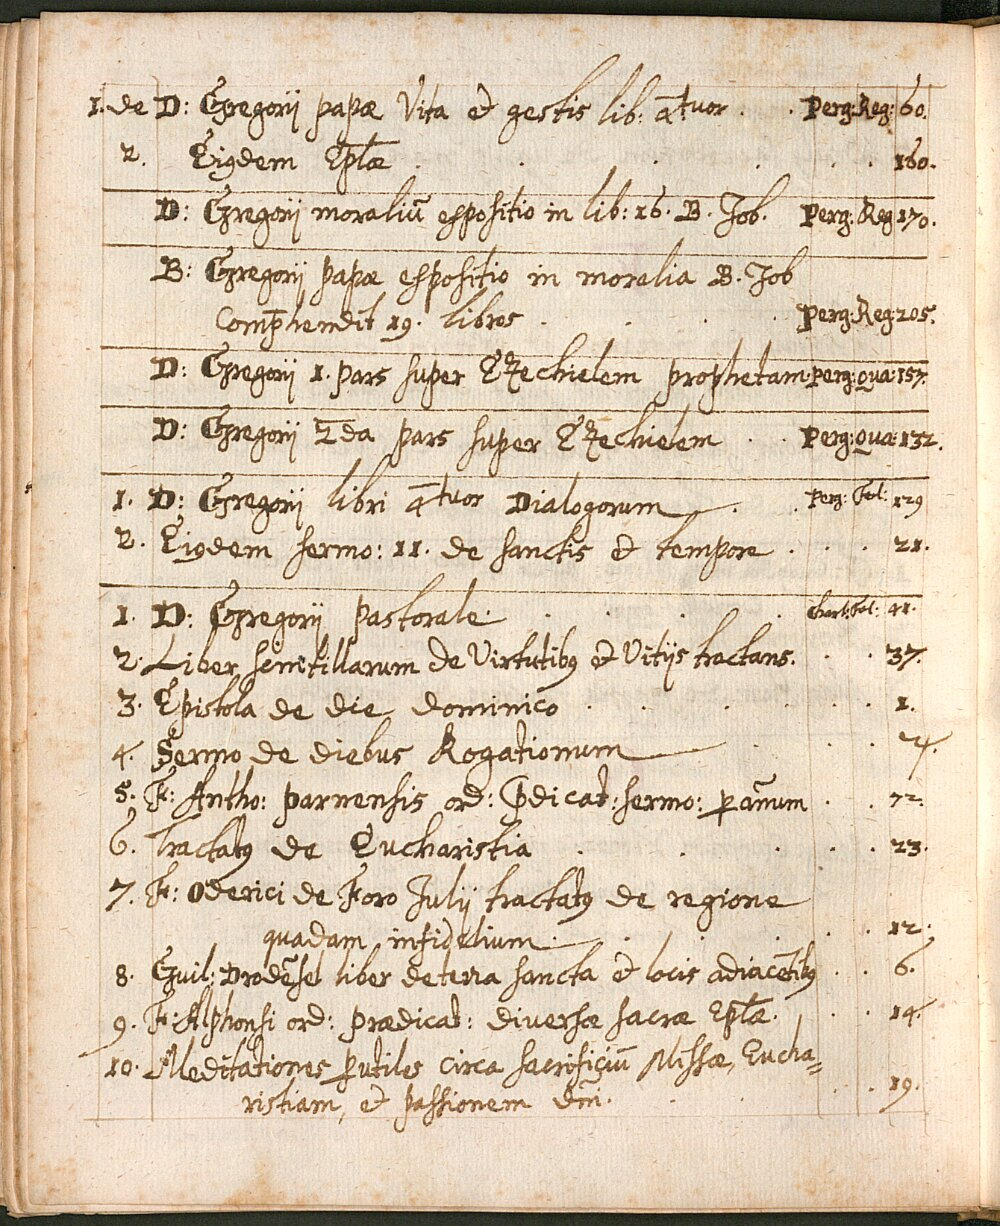 1. de D: Gregorij papæ Vita et gestis lib: q̄tuor . . Perg: Reg: 60.
2. Eiqdem Eplæ . . . . . 160.
D: Gregorij moraliū expositio in lib: 16. B. Job. Perg: Reg 170.
B: Gregorij papæ expositio in moralia B. Job
Comp̄hendit 19. libros . . . . Perg: Reg 205.
D: Gregorij 1. pars super Ezechielem prophetam. Perg: Qua: 157.
D: Gregorij 2da pars super Ezechielem . . Perg: Qua: 132.
1. D: Gregorij libri q̄tuor Dialogorum . . Perg: Fol: 129
2. Eiqdem sermo: 11. de sanctis et tempore . . . 21.
1. D: Gregorij Pastorale . . . . Chart: Fol: 41.
2. Liber scintillarum de Virtutibq et Vitijs tractans. . . 37.
3. Epistola de die dominico . . . . . . 1.
4. Sermo de diebus Rogationum . . . .
5. F: Antho: parnensis ord: p̄dicat: sermo: p añum . . 72.
6. Tractatq de Eucharistia . . . . . 23.
7. F: Oderici de Foro Julij tractatq de regione
quadam infidelium . . . . . 12.
8. Guil: liber de terra sancta et locis adiacētibq . . 6.
9. F: Alphonsi ord: prædicat: diversæ sacræ Eplæ. . . . 14.
10. Meditationes putiles circa sacrificiū Missæ, Eucha=
ristiam, et passionem dni. . . . 19.